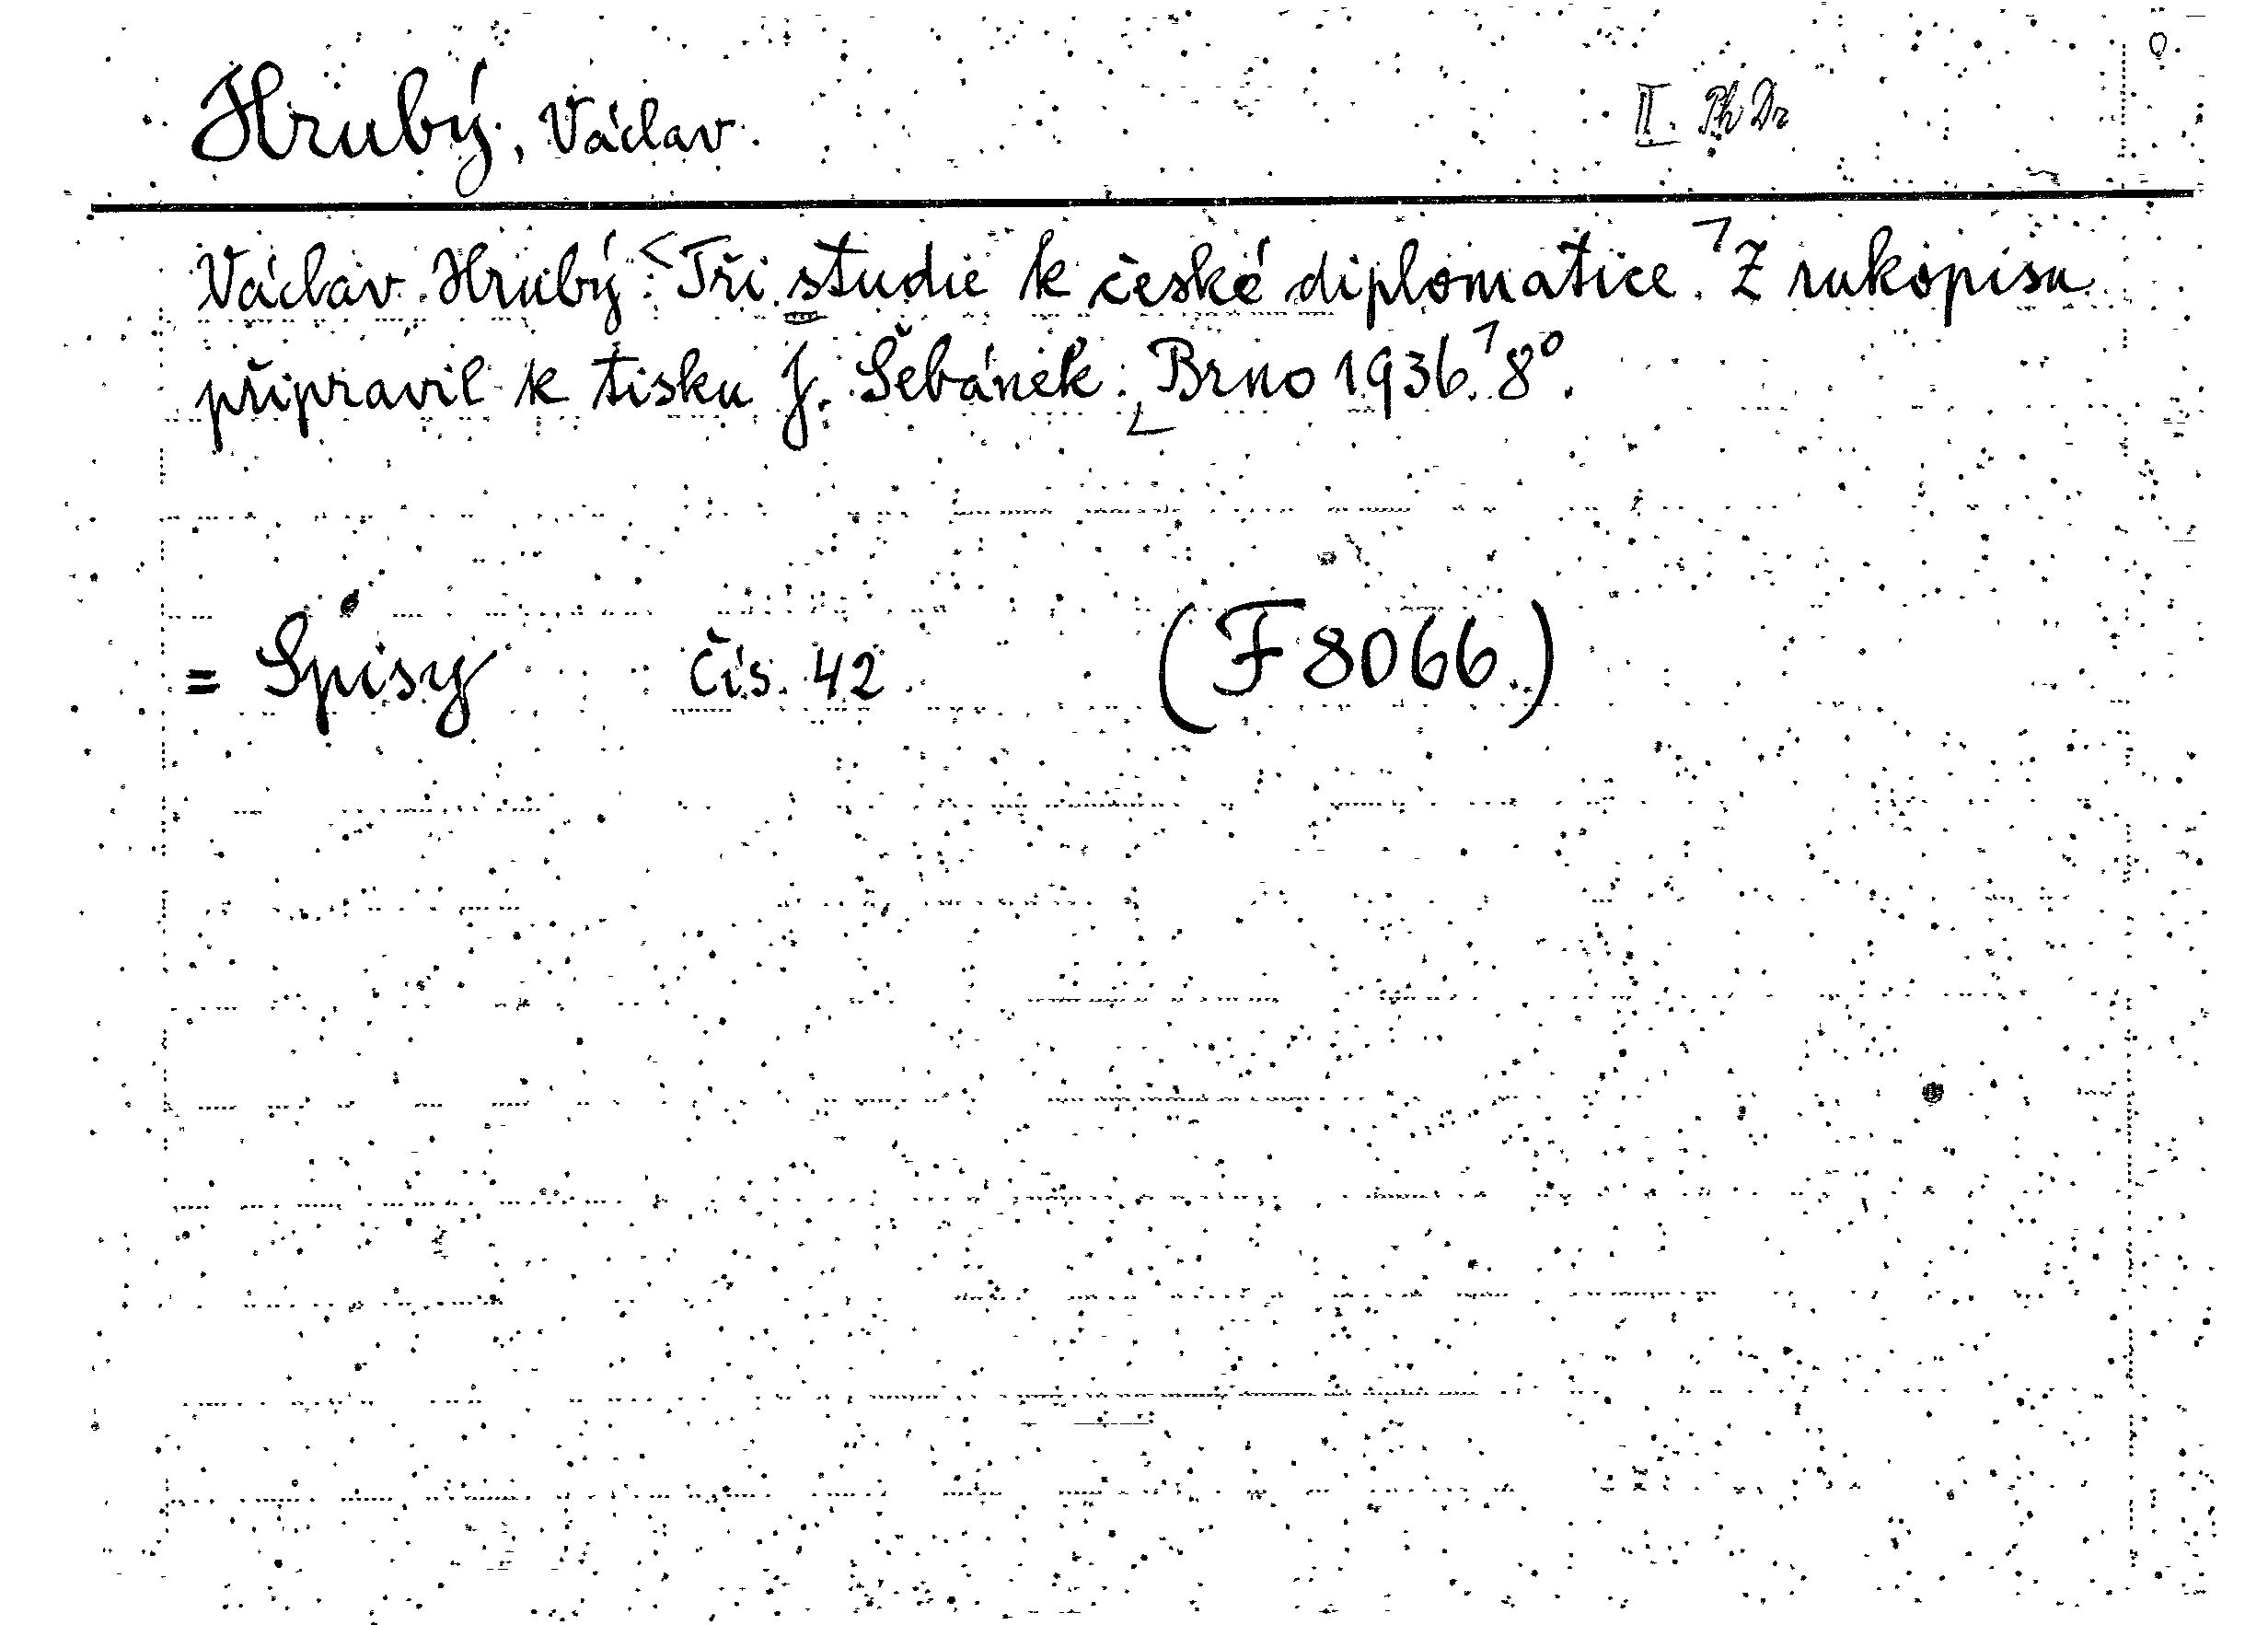 Hrubý, Václav. II. PhDr
Václav Hrubý: Tři studie k české diplomatice. Z rukopisu
připravil k tisku J. Šebánek. Brno 1936. 8°.
= Spisy čís. 42 (F 8066.)